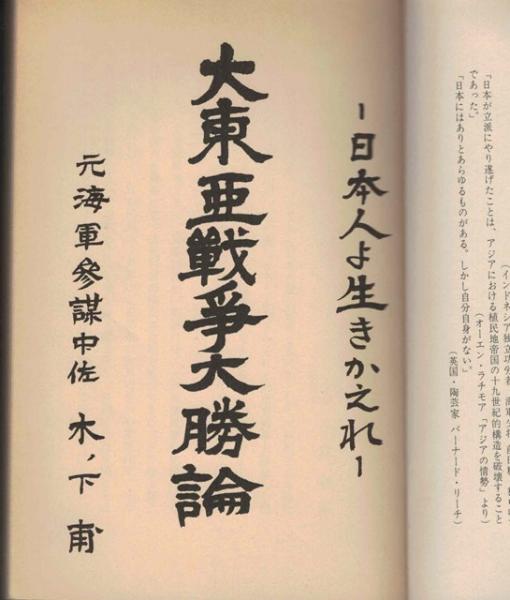 （インドネシア独立功労者
「日本が立派にやり遂げたことは、アジアにおける植民地帝国の十九世紀的構造を破壊すること
であった。」
（オーエン・ラチモア「アジアの情勢」より）
「日本にはありとあらゆるものがある。しかし自分自身がない。」
（英国・陶芸家 バーナード・リーチ）
ー日本人よ生きかえれー
大東亜戦爭大勝論
元海軍參謀中佐 木ノ下 甫